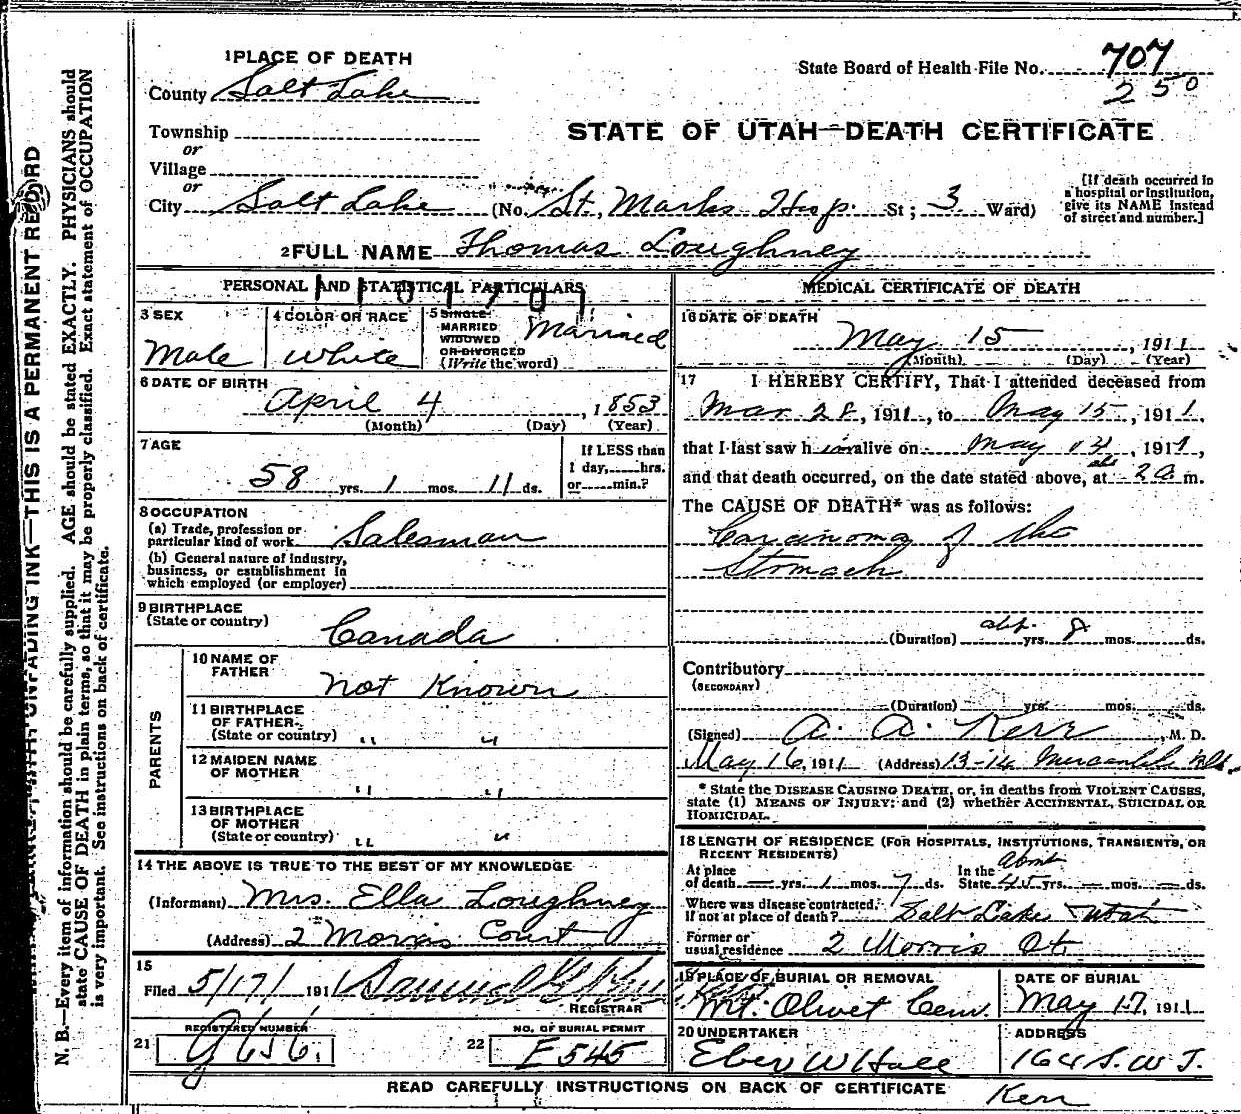 1 PLACE OF DEATH
County Salt Lake
Township
or
Village
or
City Salt Lake (No. St. Marks Hosp. St; 3 Ward)
State Board of Health File No. 707
250
STATE OF UTAH—DEATH CERTIFICATE
[If death occurred in a hospital or institution, give its NAME instead of street and number.]
2 FULL NAME Thomas Loughney
PERSONAL AND STATISTICAL PARTICULARS
1101707
3 SEX
Male
4 COLOR OR RACE
White
5 SINGLE
MARRIED
WIDOWED
OR DIVORCED
(Write the word)
Married
6 DATE OF BIRTH
April 4, 1853
(Month) (Day) (Year)
7 AGE
58 yrs. 1 mos. 11 ds.
If LESS than
1 day, hrs.
or min.?
8 OCCUPATION
(a) Trade, profession or
particular kind of work Salesman
(b) General nature of industry,
business, or establishment in
which employed (or employer)
9 BIRTHPLACE
(State or country)
Canada
PARENTS
10 NAME OF
FATHER
not Known
11 BIRTHPLACE
OF FATHER
(State or country) " "
12 MAIDEN NAME
OF MOTHER
" "
13 BIRTHPLACE
OF MOTHER
(State or country) " "
14 THE ABOVE IS TRUE TO THE BEST OF MY KNOWLEDGE
(Informant) Mrs. Ella Loughney
(Address) 2 Morris Court
15
Filed 5/17/ 1911
REGISTRAR
REGISTERED NUMBER
21 G656.
NO. OF BURIAL PERMIT
22 E545
MEDICAL CERTIFICATE OF DEATH
16 DATE OF DEATH
May 15, 1911
(Month) (Day) (Year)
17 I HEREBY CERTIFY, That I attended deceased from
Mar 28, 1911, to May 15, 1911,
that I last saw him alive on May 14, 1911,
and that death occurred, on the date stated above, at abt 2 a m.
The CAUSE OF DEATH* was as follows:
Carcinoma of the
Stomach
(Duration) abt. yrs. 8 mos. ds.
Contributory
(SECONDARY)
(Duration) yrs. mos. ds.
(Signed) A. A. Kerr, M. D.
May 16, 1911 (Address) 13-14 Mercantile Blk.
* State the DISEASE CAUSING DEATH, or, in deaths from VIOLENT CAUSES,
state (1) MEANS OF INJURY; and (2) whether ACCIDENTAL, SUICIDAL OR
HOMICIDAL.
18 LENGTH OF RESIDENCE (FOR HOSPITALS, INSTITUTIONS, TRANSIENTS, OR
RECENT RESIDENTS)
At place
of death — yrs. 1 mos. 7 ds.
In the
State about 45 yrs. — mos. — ds.
Where was disease contracted,
If not at place of death? Salt Lake Utah
Former or
usual residence 2 Morris Ct.
19 PLACE OF BURIAL OR REMOVAL
Mt. Olivet Cem.
DATE OF BURIAL
May 17, 1911
20 UNDERTAKER
Eber W Hall
ADDRESS
164 S. W T.
READ CAREFULLY INSTRUCTIONS ON BACK OF CERTIFICATE
Kerr
UNFADING INK—THIS IS A PERMANENT RECORD
N. B.—Every item of information should be carefully supplied. AGE should be stated EXACTLY. PHYSICIANS should
state CAUSE OF DEATH in plain terms, so that it may be properly classified. Exact statement of OCCUPATION
is very important. See instructions on back of certificate.